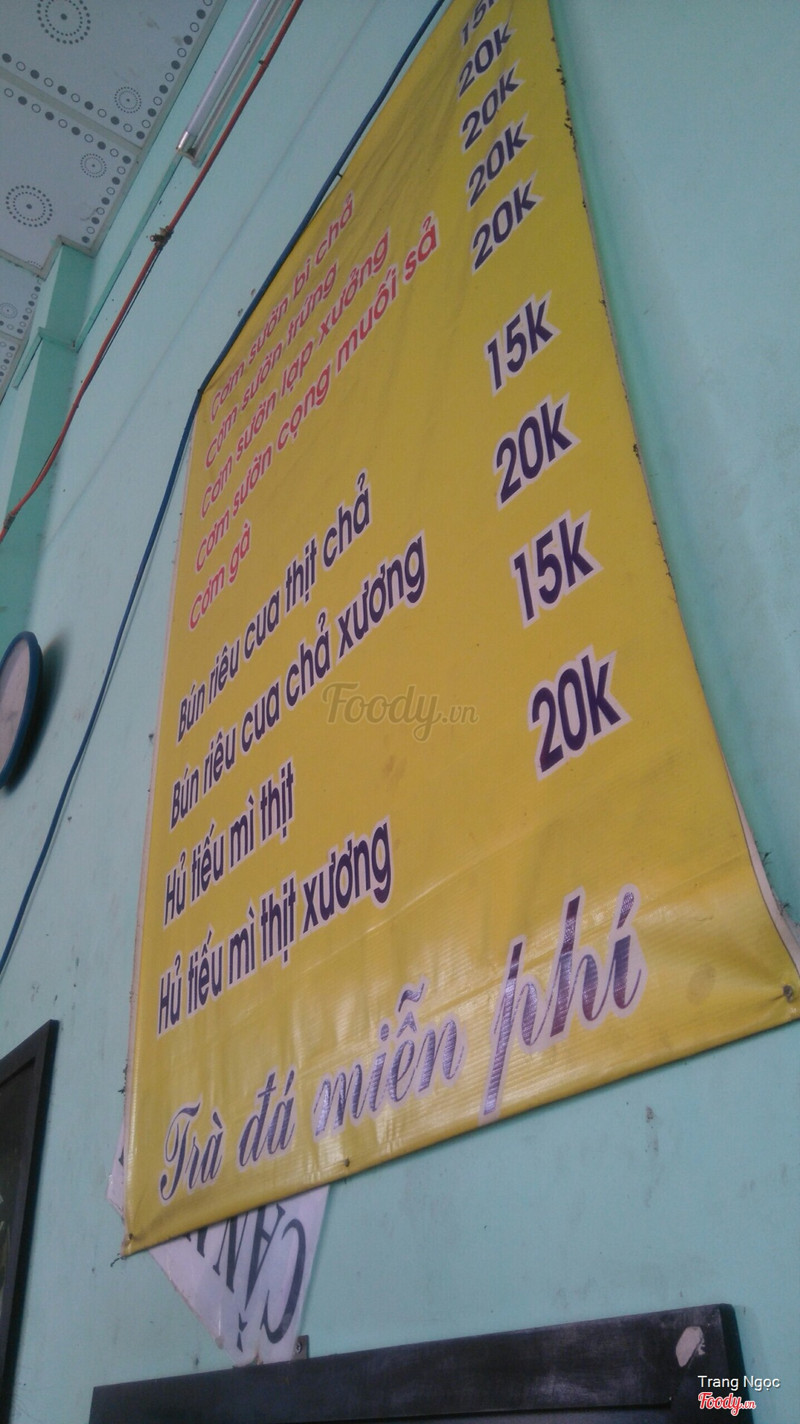 Cơm sườn bì chả 15k
Cơm sườn trứng 20k
Cơm sườn lạp xưởng 20k
Cơm sườn cọng muối sả 20k
Cơm gà 20k
Bún riêu cua thịt chả 15k
Bún riêu cua chả xương 20k
Hủ tiếu mì thịt 15k
Hủ tiếu mì thịt xương 20k
Trà đá miễn phí
Foody.vn
Trang Ngọc
Foody.vn